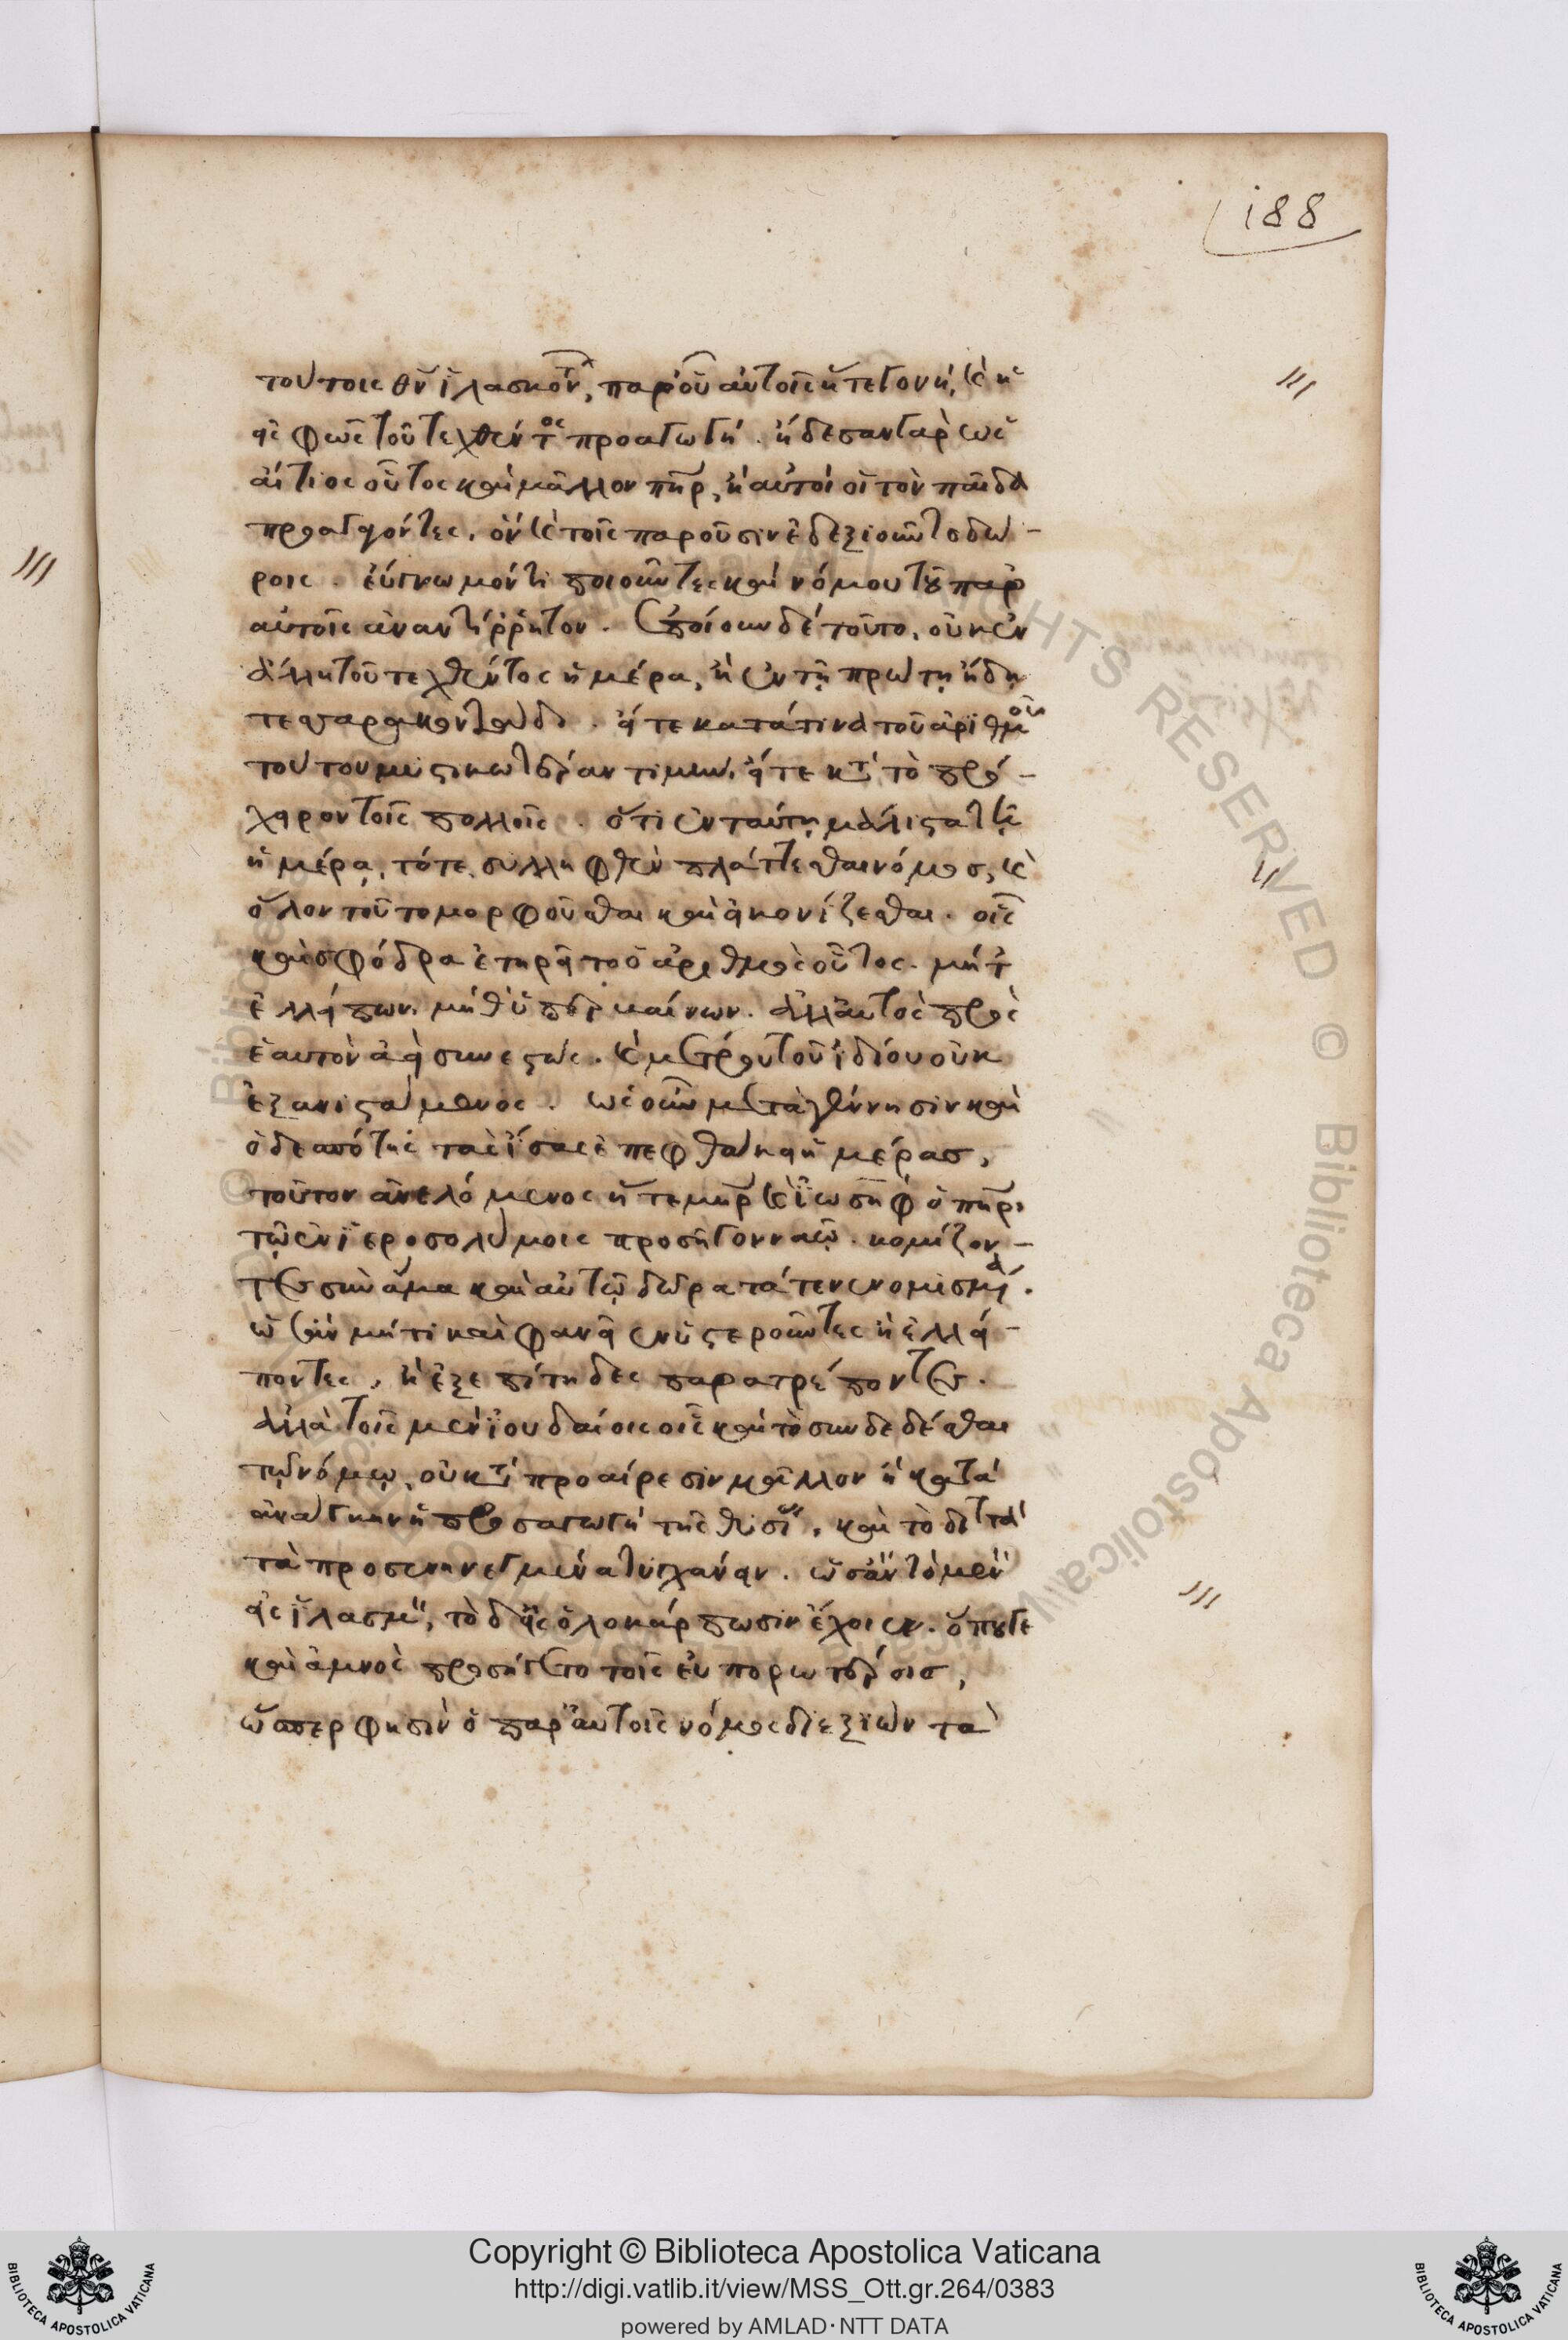 188
τούτοις θν ἱλασκοντ, παρ' οὗ αὐτοῖς ἥ τε γονὴ, κ ἡ
εἰς φῶς τοῦ τεχθέντος προαγωγή. ᾔδεσαν γὰρ ὡς
αἴτιος οὗτος καὶ μᾶλλον πηρ, ἢ αὐτοὶ οἱ τὸν παῖδα
προαγαγόντες. ὃν κ τοῖς παροῦσιν ἐδεξιοῦντο δώ-
ροις. εὔγνωμόν τι ποιοῦντες καὶ νόμου τοῦ παρ'
αὐτοῖς ἀναντίρρητον. ἐποίουν δὲ τοῦτο, οὐκ ἐν
ἄλλῃ τοῦ τεχθέντος ἡμέρᾳ, ἢ ἐν τῇ πρώτῃ ἤδη
τεσσαρακονταδι. εἴτε κατά τινα τοῦ ἀριθμοῦ
τούτου μυστικωτέραν τιμὴν, εἴτε κτ τὸ πρό-
χειρον τοῖς πολλοῖς. ὅτι ἐν ταύτῃ μάλιστα τῇ
ἡμέρᾳ, τότε συλληφθὲν πλάττεσθαι νόμος, κ
ὅλον τοῦτο μορφοῦσθαι καὶ εἰκονίζεσθαι. οἷς
καὶ σφόδρα ἐτηρεῖτο ὁ ἀριθμὸς οὗτος. μήτ'
ἐλλείπων, μήθ' ὑπερβαίνων. ἀλλ' αὐτὸς πρὸς
ἑαυτὸν ἀεὶ συνεστὼς. κ μέτρου τοῦ ἰδίου οὐκ
ἐξανιστάμενος. ὡς οὖν μετὰ γέννησιν καὶ
ὁ δεσπότης τὰς ἴσας ἐπεφθάκει ἡμέρας,
τοῦτον ἀνελόμενος ἥ τε μηρ κ ἰωσὴφ ὁ πηρ,
τῷ ἐν ἱεροσολύμοις προσῆγον ναῷ. κομίζον-
τες συνάμα καὶ αὐτῷ δῶρα τά τενενομισμένα.
ὡς ἂν μή τι καὶ φανεῖεν ὑστεροῦντες ἢ ἐλλεί-
ποντες, ἢ ἐξεπίτηδες παρατρέποντες.
ἀλλὰ τοῖς μὲν ἰουδαίοις οἷς καὶ τὸ συνδεδέσθαι
τῷ νόμῳ, οὐ κτ προαίρεσιν μᾶλλον ἢ κατὰ
ἀνάγκην ἡ προσαγωγὴ τῆς θυσίας, καὶ τὸ διττὰ
τὰ προσενηνεγμένα τυγχάνειν. ὡς ἂν τὸ μὲν
εἰς ἱλασμὸν, τὸ δ' εἰς ὁλοκάρπωσιν ἔχοιεν. ὅπου γε
καὶ ἀμνὸς προσήγετο τοῖς εὐπορωτέροις,
ὥσπερ φησὶν ὁ παρ' αὐτοῖς νόμος διεξιὼν τὰ
Copyright © Biblioteca Apostolica Vaticana
http://digi.vatlib.it/view/MSS_Ott.gr.264/0383
powered by AMLAD·NTT DATA